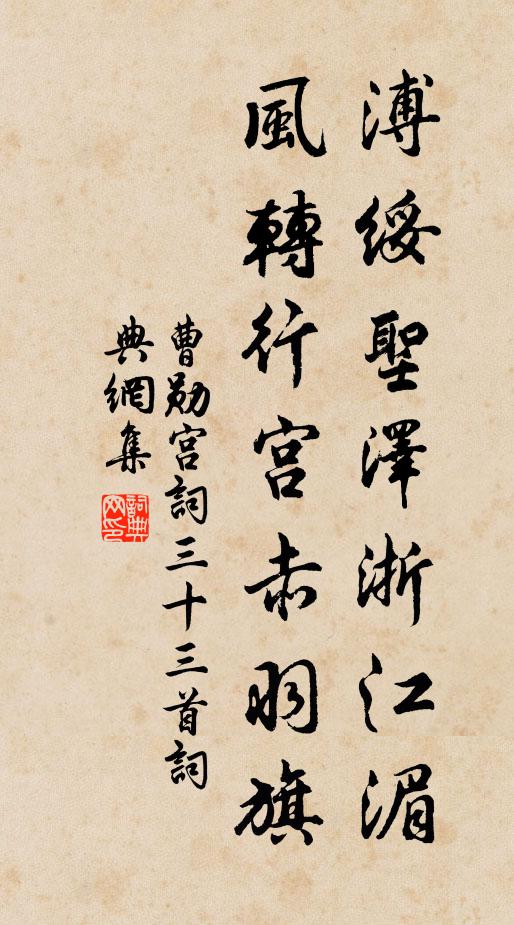 溥綏聖澤浙江湄
風轉行宮赤羽旗
曹勛宮詞三十三首詞
典網集
詞典
网印